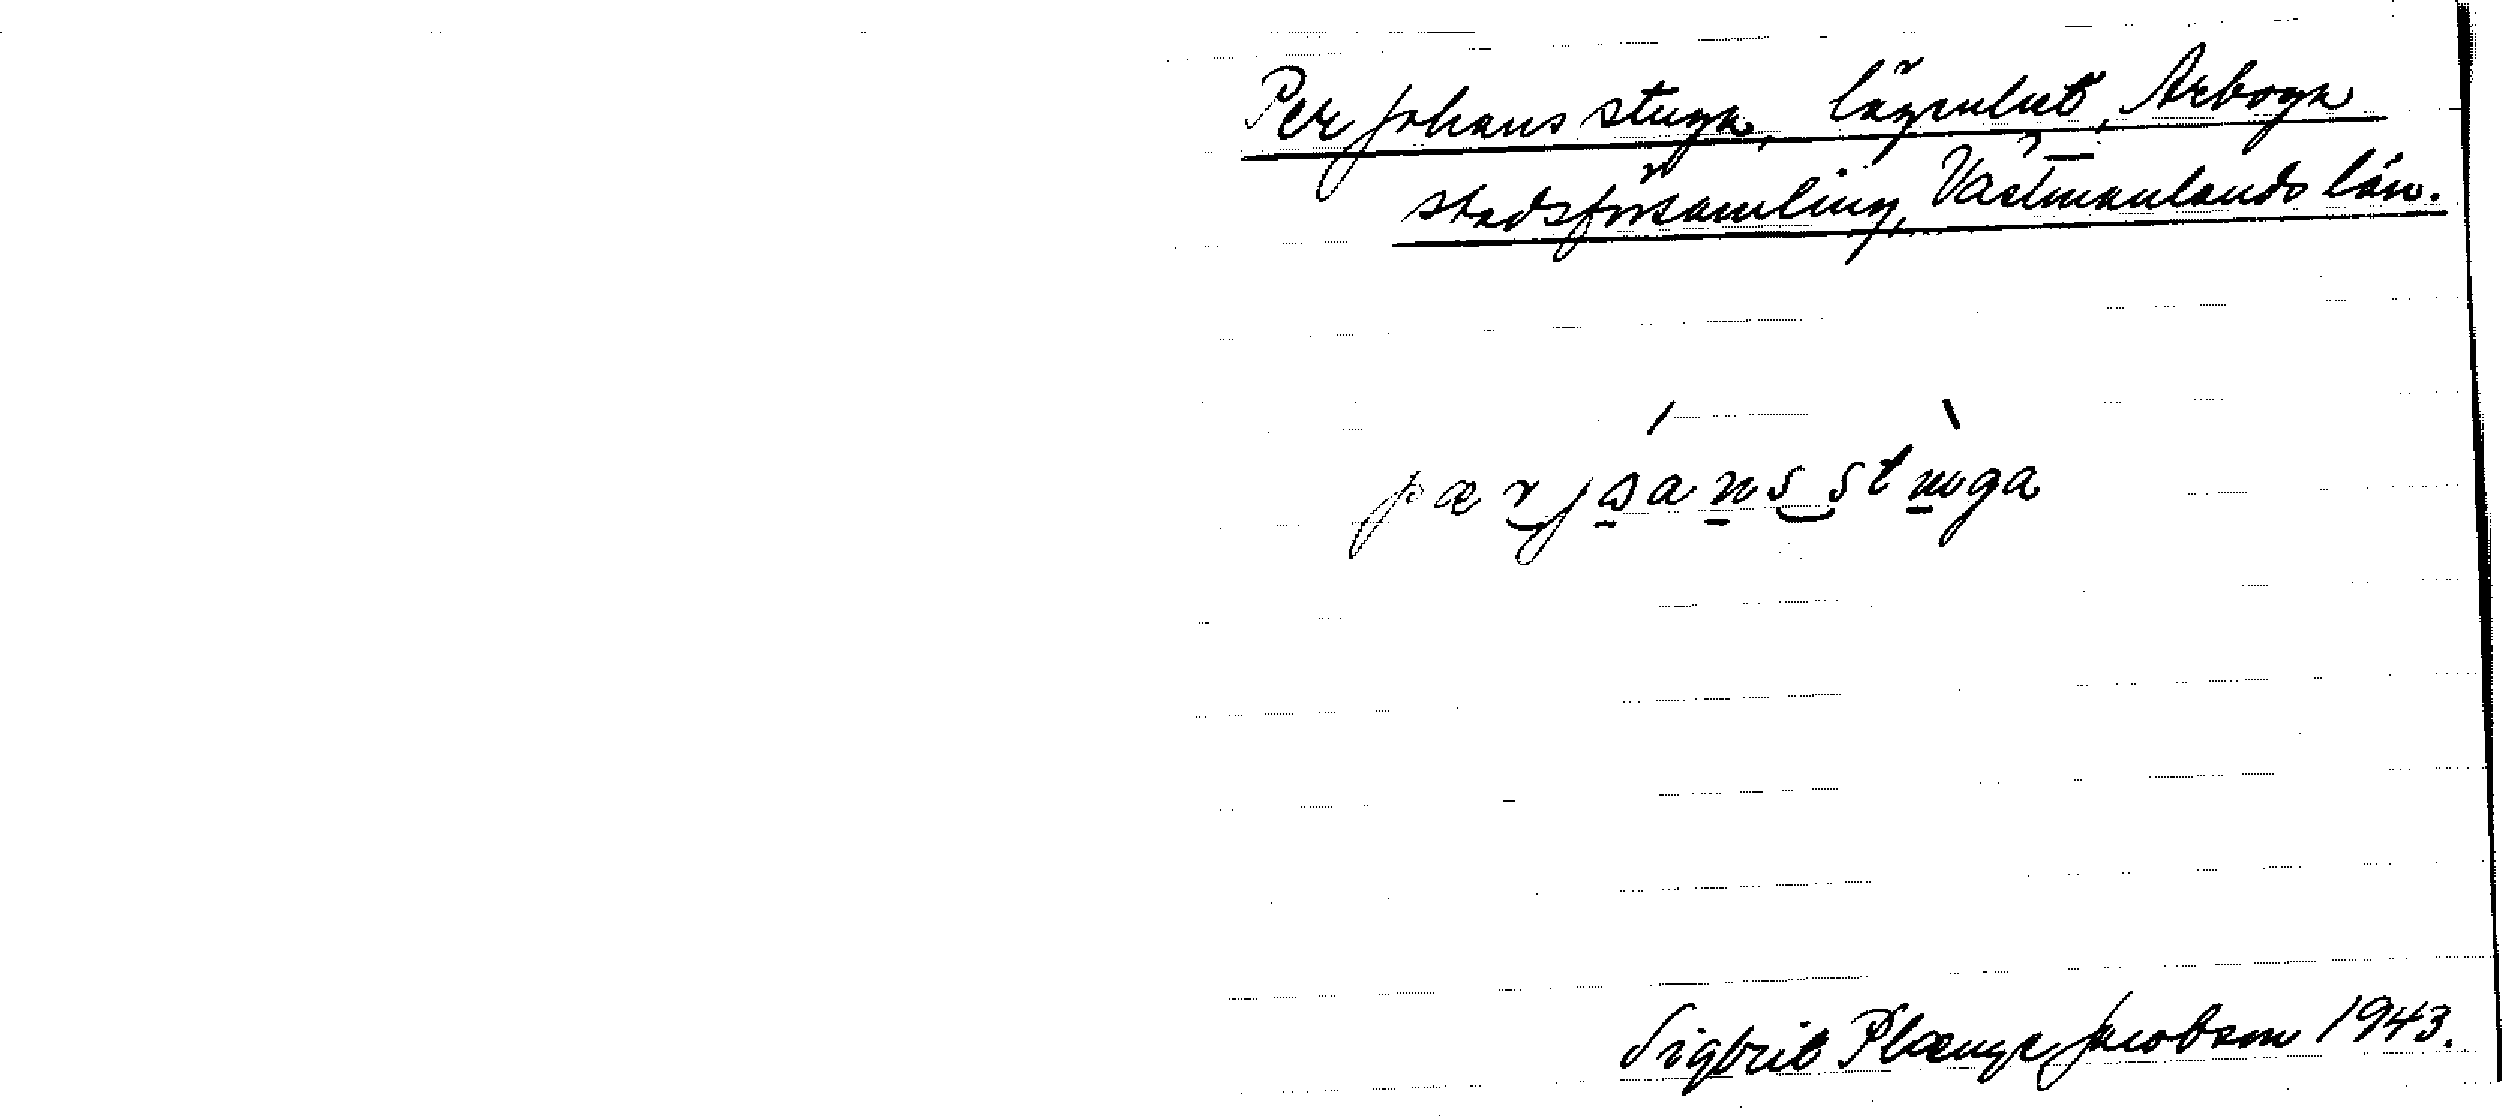 Per Johans stuga, lägenhet, Arboga
stadsförsamling, Västmanlands län.
pærjɷans stuga
Sigbrit Plænge Jacobson 1943.